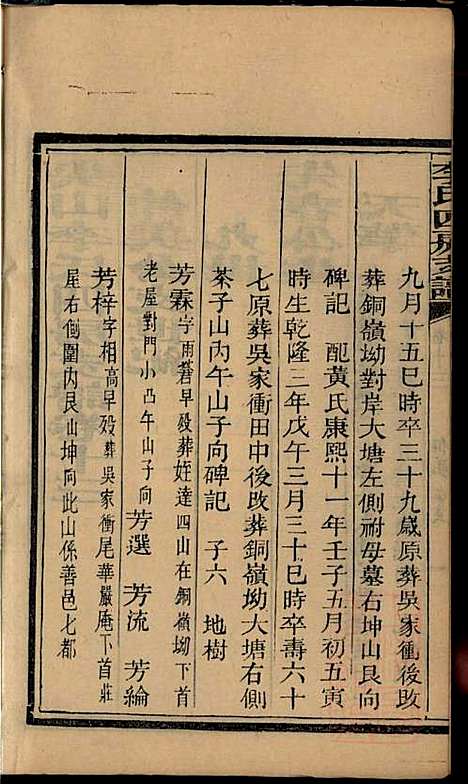 李氏四房支譜
九月十五巳時卒三十九歲原葬吳家衝後改
葬銅嶺坳對岸大塘左側祔母墓右坤山艮向
碑記 配黃氏康熙十一年壬子五月初五寅
時生乾隆三年戊午三月三十巳時卒壽六十
七原葬吳家衝田中後改葬銅嶺坳大塘右側
茶子山丙午山子向碑記 子六 地樹
芳霖字雨蒼早歿葬姪達四山在銅嶺坳下首
老屋對門小凸午山子向 芳選 芳流 芳綸
芳梓字相高早歿葬吳家衝尾華嚴庵下首莊
屋右側圍內艮山坤向此山係善邑七都